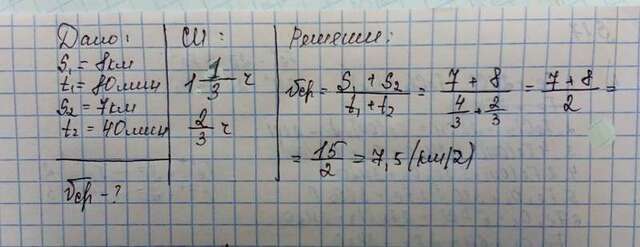 Дано:
S₁ = 8км
t₁ = 80мин
S₂ = 7км
t₂ = 40мин
υср - ?
СИ:
1 1/3 ч
2/3 ч
Решение:
υср = (S₁ + S₂)/(t₁ + t₂) = (7 + 8)/(4/3 + 2/3) = (7 + 8)/2 =
= 15/2 = 7,5 (км/г)